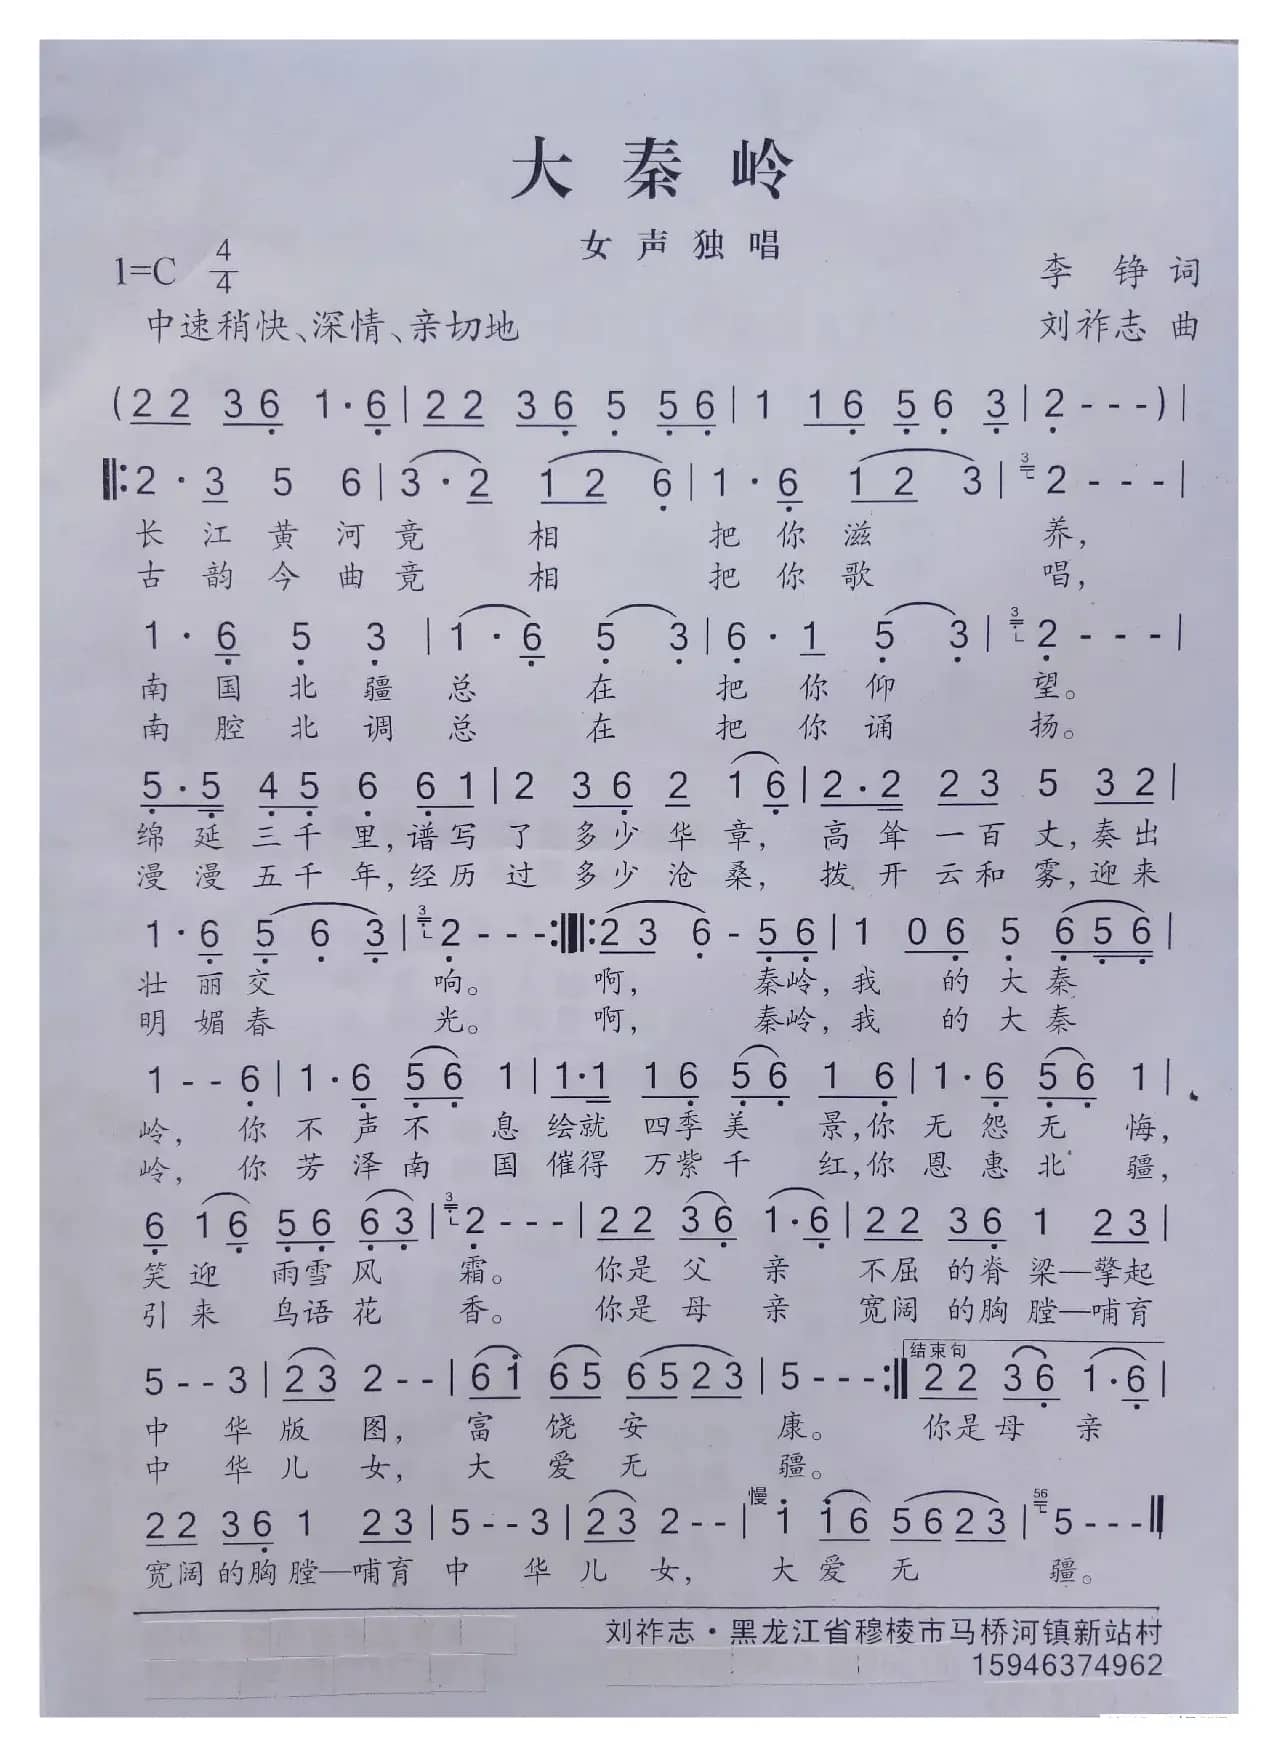 大秦岭
女声独唱
1=C 4/4
李铮词
中速稍快、深情、亲切地
刘祚志曲
(2 2 3 6 1·6 | 2 2 3 6 5 5 6 | 1 1 6 5 6 3 | 2 - - -) |
‖: 2·3 5 6 | 3·2 1 2 6 | 1·6 1 2 3 | 3 2 - - - |
长江黄河竟相把你滋养,
古韵今曲竟相把你歌唱,
1·6 5 3 | 1·6 5 3 | 6·1 5 3 | 3 2 - - - |
南国北疆总在把你仰望。
南腔北调总在把你诵扬。
5·5 4 5 6 6 1 | 2 3 6 2 1 6 | 2·2 2 3 5 3 2 |
绵延三千里,谱写了多少华章,高耸一百丈,奏出
漫漫五千年,经历过多少沧桑,拨开云和雾,迎来
1·6 5 6 3 | 3 2 - - - :‖: 2 3 6 - 5 6 | 1 0 6 5 6 5 6 |
壮丽交响。啊,秦岭,我的大秦
明媚春光。啊,秦岭,我的大秦
1 - - 6 | 1·6 5 6 1 | 1·1 1 6 5 6 1 6 | 1·6 5 6 1 |
岭,你不声不息绘就四季美景,你无怨无悔,
岭,你芳泽南国催得万紫千红,你恩惠北疆,
6 1 6 5 6 6 3 | 3 2 - - - | 2 2 3 6 1·6 | 2 2 3 6 1 2 3 |
笑迎雨雪风霜。你是父亲不屈的脊梁—擎起
引来鸟语花香。你是母亲宽阔的胸膛—哺育
结束句
5 - - 3 | 2 3 2 - - | 6 1 6 5 6 5 2 3 | 5 - - - :‖ 2 2 3 6 1·6 |
中华版图,富饶安康。你是母亲
中华儿女,大爱无疆。
慢
2 2 3 6 1 2 3 | 5 - - 3 | 2 3 2 - - | 1 1 6 5 6 2 3 | 56 5 - - - ‖
宽阔的胸膛—哺育中华儿女,大爱无疆。
刘祚志·黑龙江省穆棱市马桥河镇新站村
15946374962